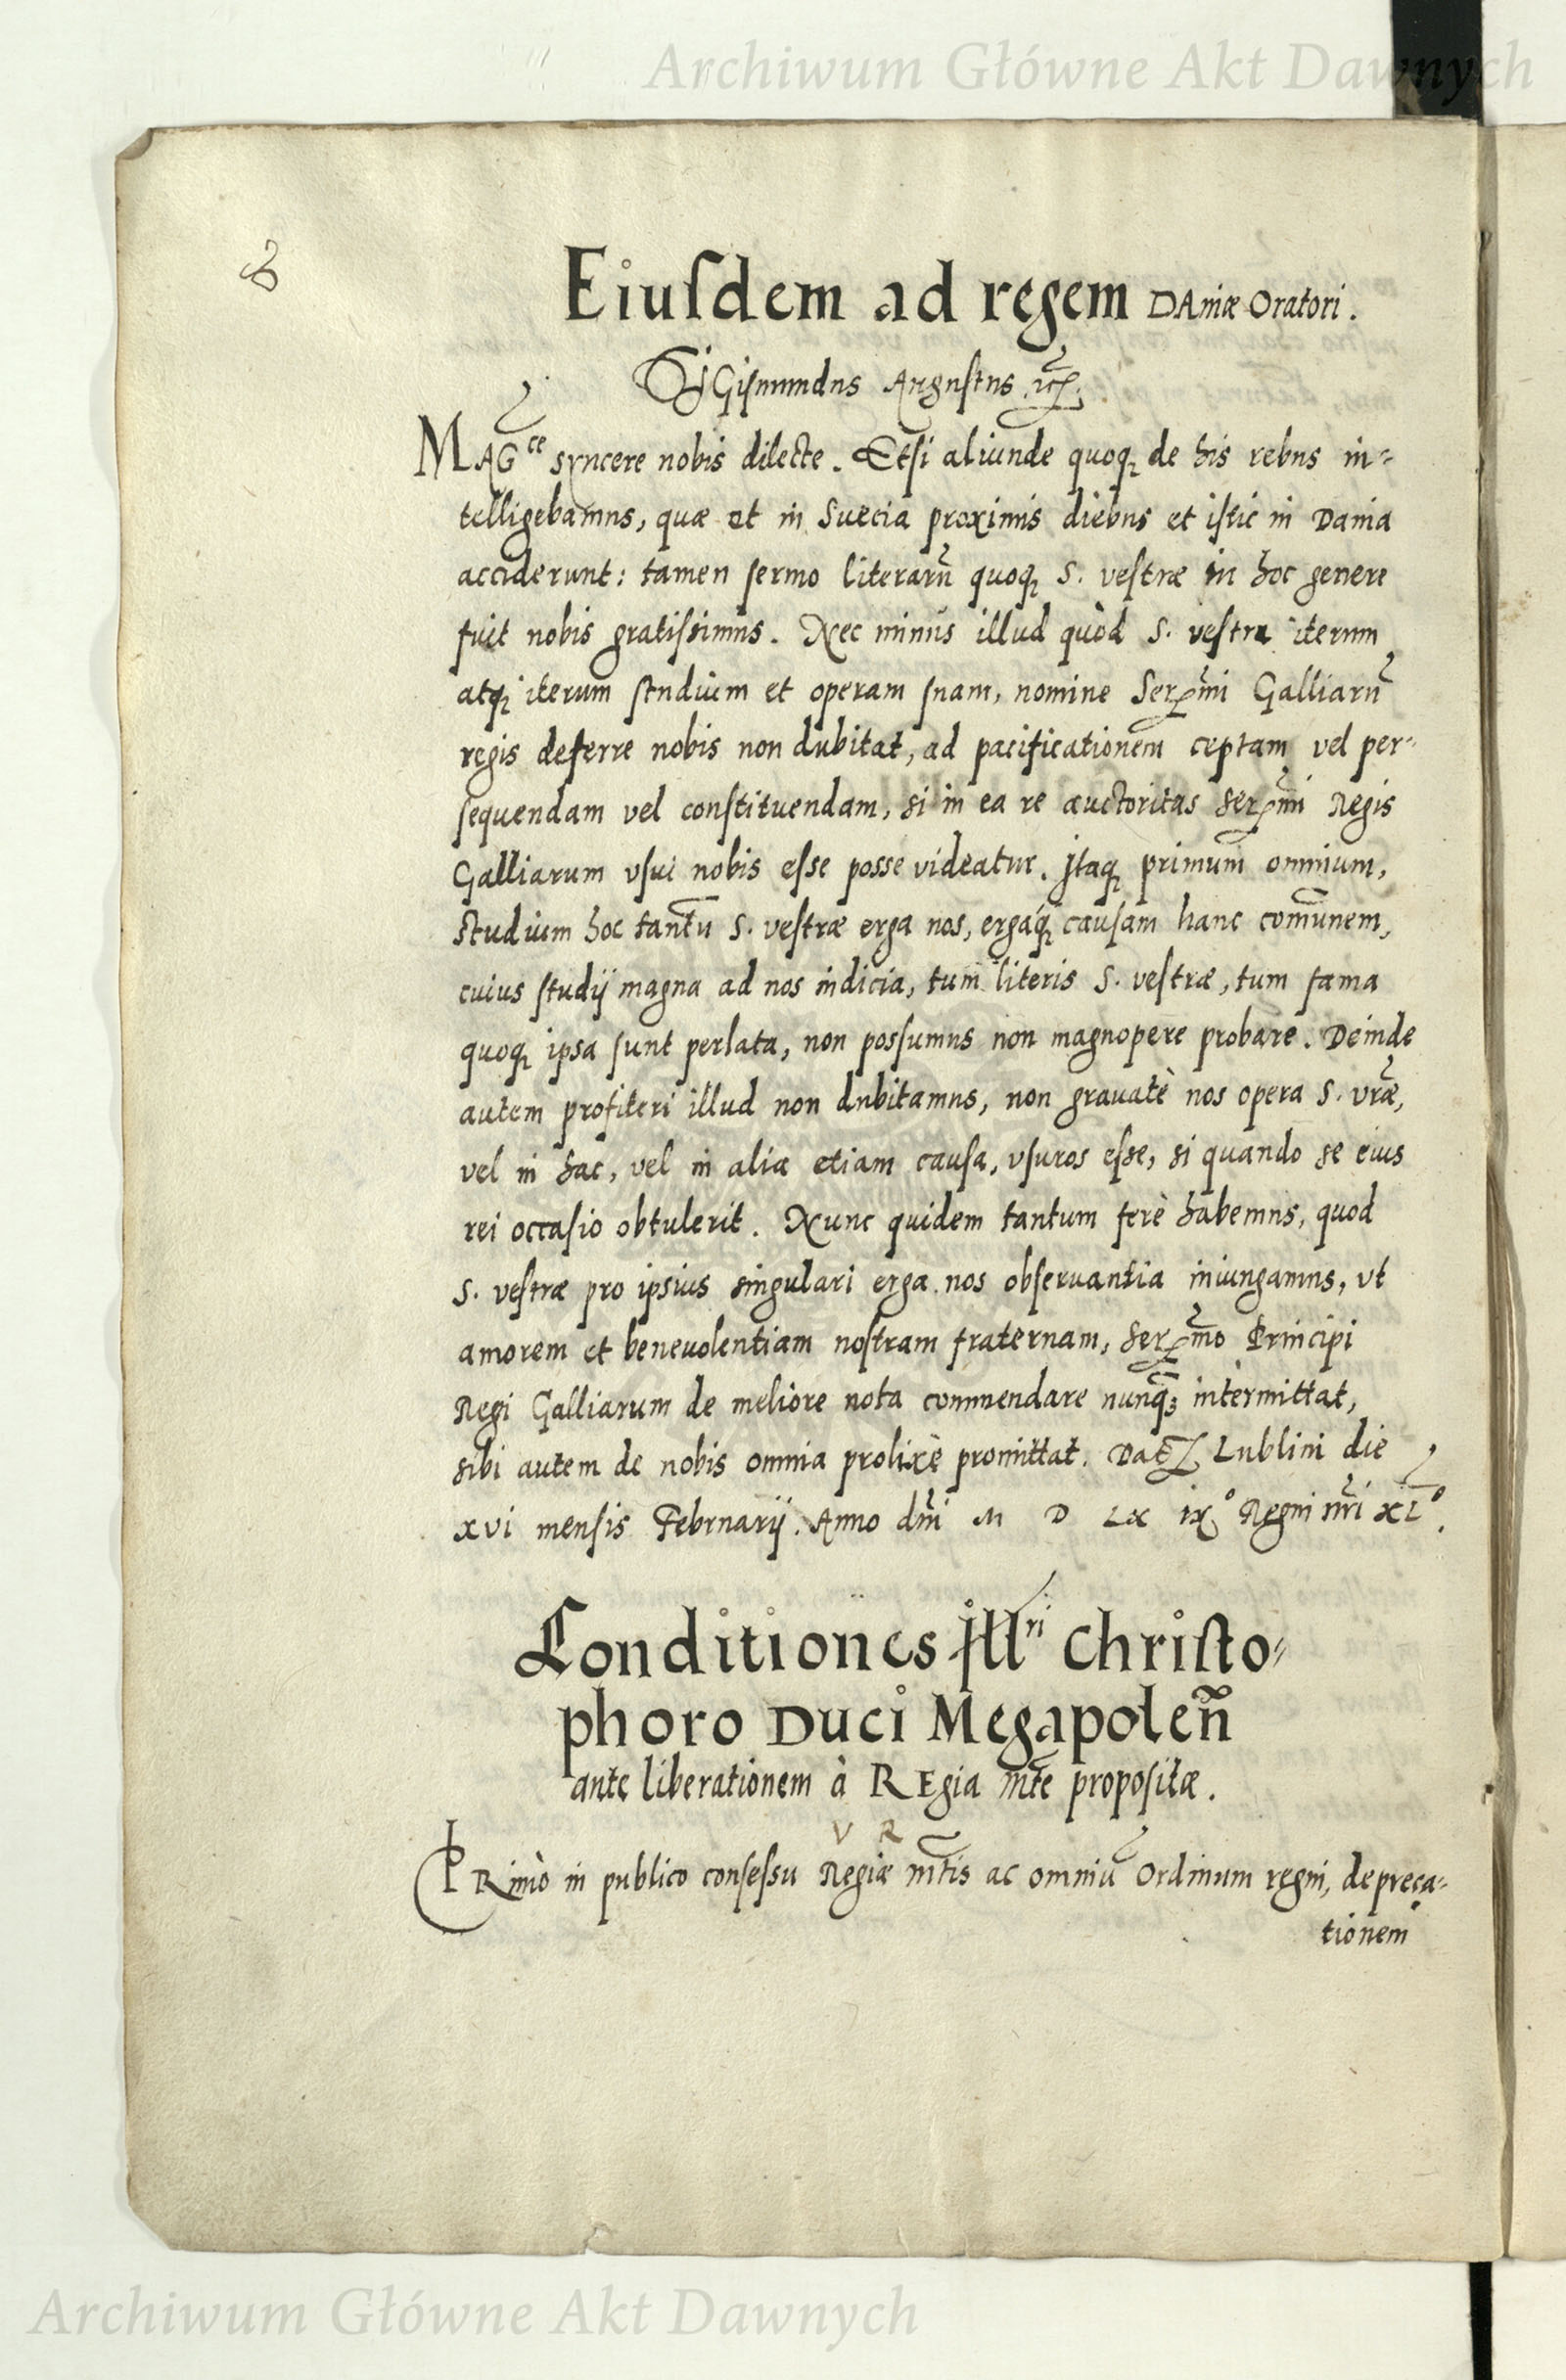 Archiwum Główne Akt Dawnych
8
Eiuſdem ad regem DAniæ Oratori.
SiGiſmundus Auguſtus etc.
MAG^ce syncere nobis dilecte. Etſi aliunde quoq; de his rebus in-
telligebamus, quæ et in Suecia proximis diebus et iſtic in Dania
acciderunt: tamen ſermo literarũ quoq; S. veſtræ in hoc genere
fuit nobis gratiſsimus. Nec minus illud quòd S. veſtra iterum
atq; iterum ſtudium et operam ſuam, nomine Serᵐⁱ Galliarũ
regis deferre nobis non dubitat, ad pacificationem ceptam vel per-
ſequendam vel conſtituendam, si in ea re auctoritas Serᵐⁱ Regis
Galliarum vſui nobis eſse posse videatur. Jtaq; primum omnium,
Studium hoc tantũ S. veſtræ erga nos, ergáq; cauſam hanc comunem,
cuius ſtudij magna ad nos indicia, tum literis S. veſtræ, tum fama
quoq; ipsa ſunt perlata, non poſsumus non magnopere probare. Deinde
autem profiteri illud non dubitamus, non grauatè nos opera S. vr̃æ,
vel in hac, vel in alia etiam cauſa, vſuros eſse, si quando se eius
rei occaſio obtulerit. Nunc quidem tantum ferè habemus, quod
S. veſtræ pro ipsius singulari erga nos obſeruantia iniungamus, vt
amorem et beneuolentiam noſtram fraternam, Serᵐᵒ Principi
Regi Galliarum de meliore nota commendare nunq̃ȝ intermittat,
sibi autem de nobis omnia prolixè promittat. Dat. Lublini die
xvi mensis Februarij. Anno dñi M D LX ix° Regni nr̃i XL°.
Conditiones Jllʳⁱ Chriſto-
phoro Duci Megapoleñ
ante liberationem à REgia mte propoſitæ.
V R
PRimò in publico conſeſsu Regiæ mtis ac omniũ Ordinum regni, depreca-
tionem
Archiwum Główne Akt Dawnych